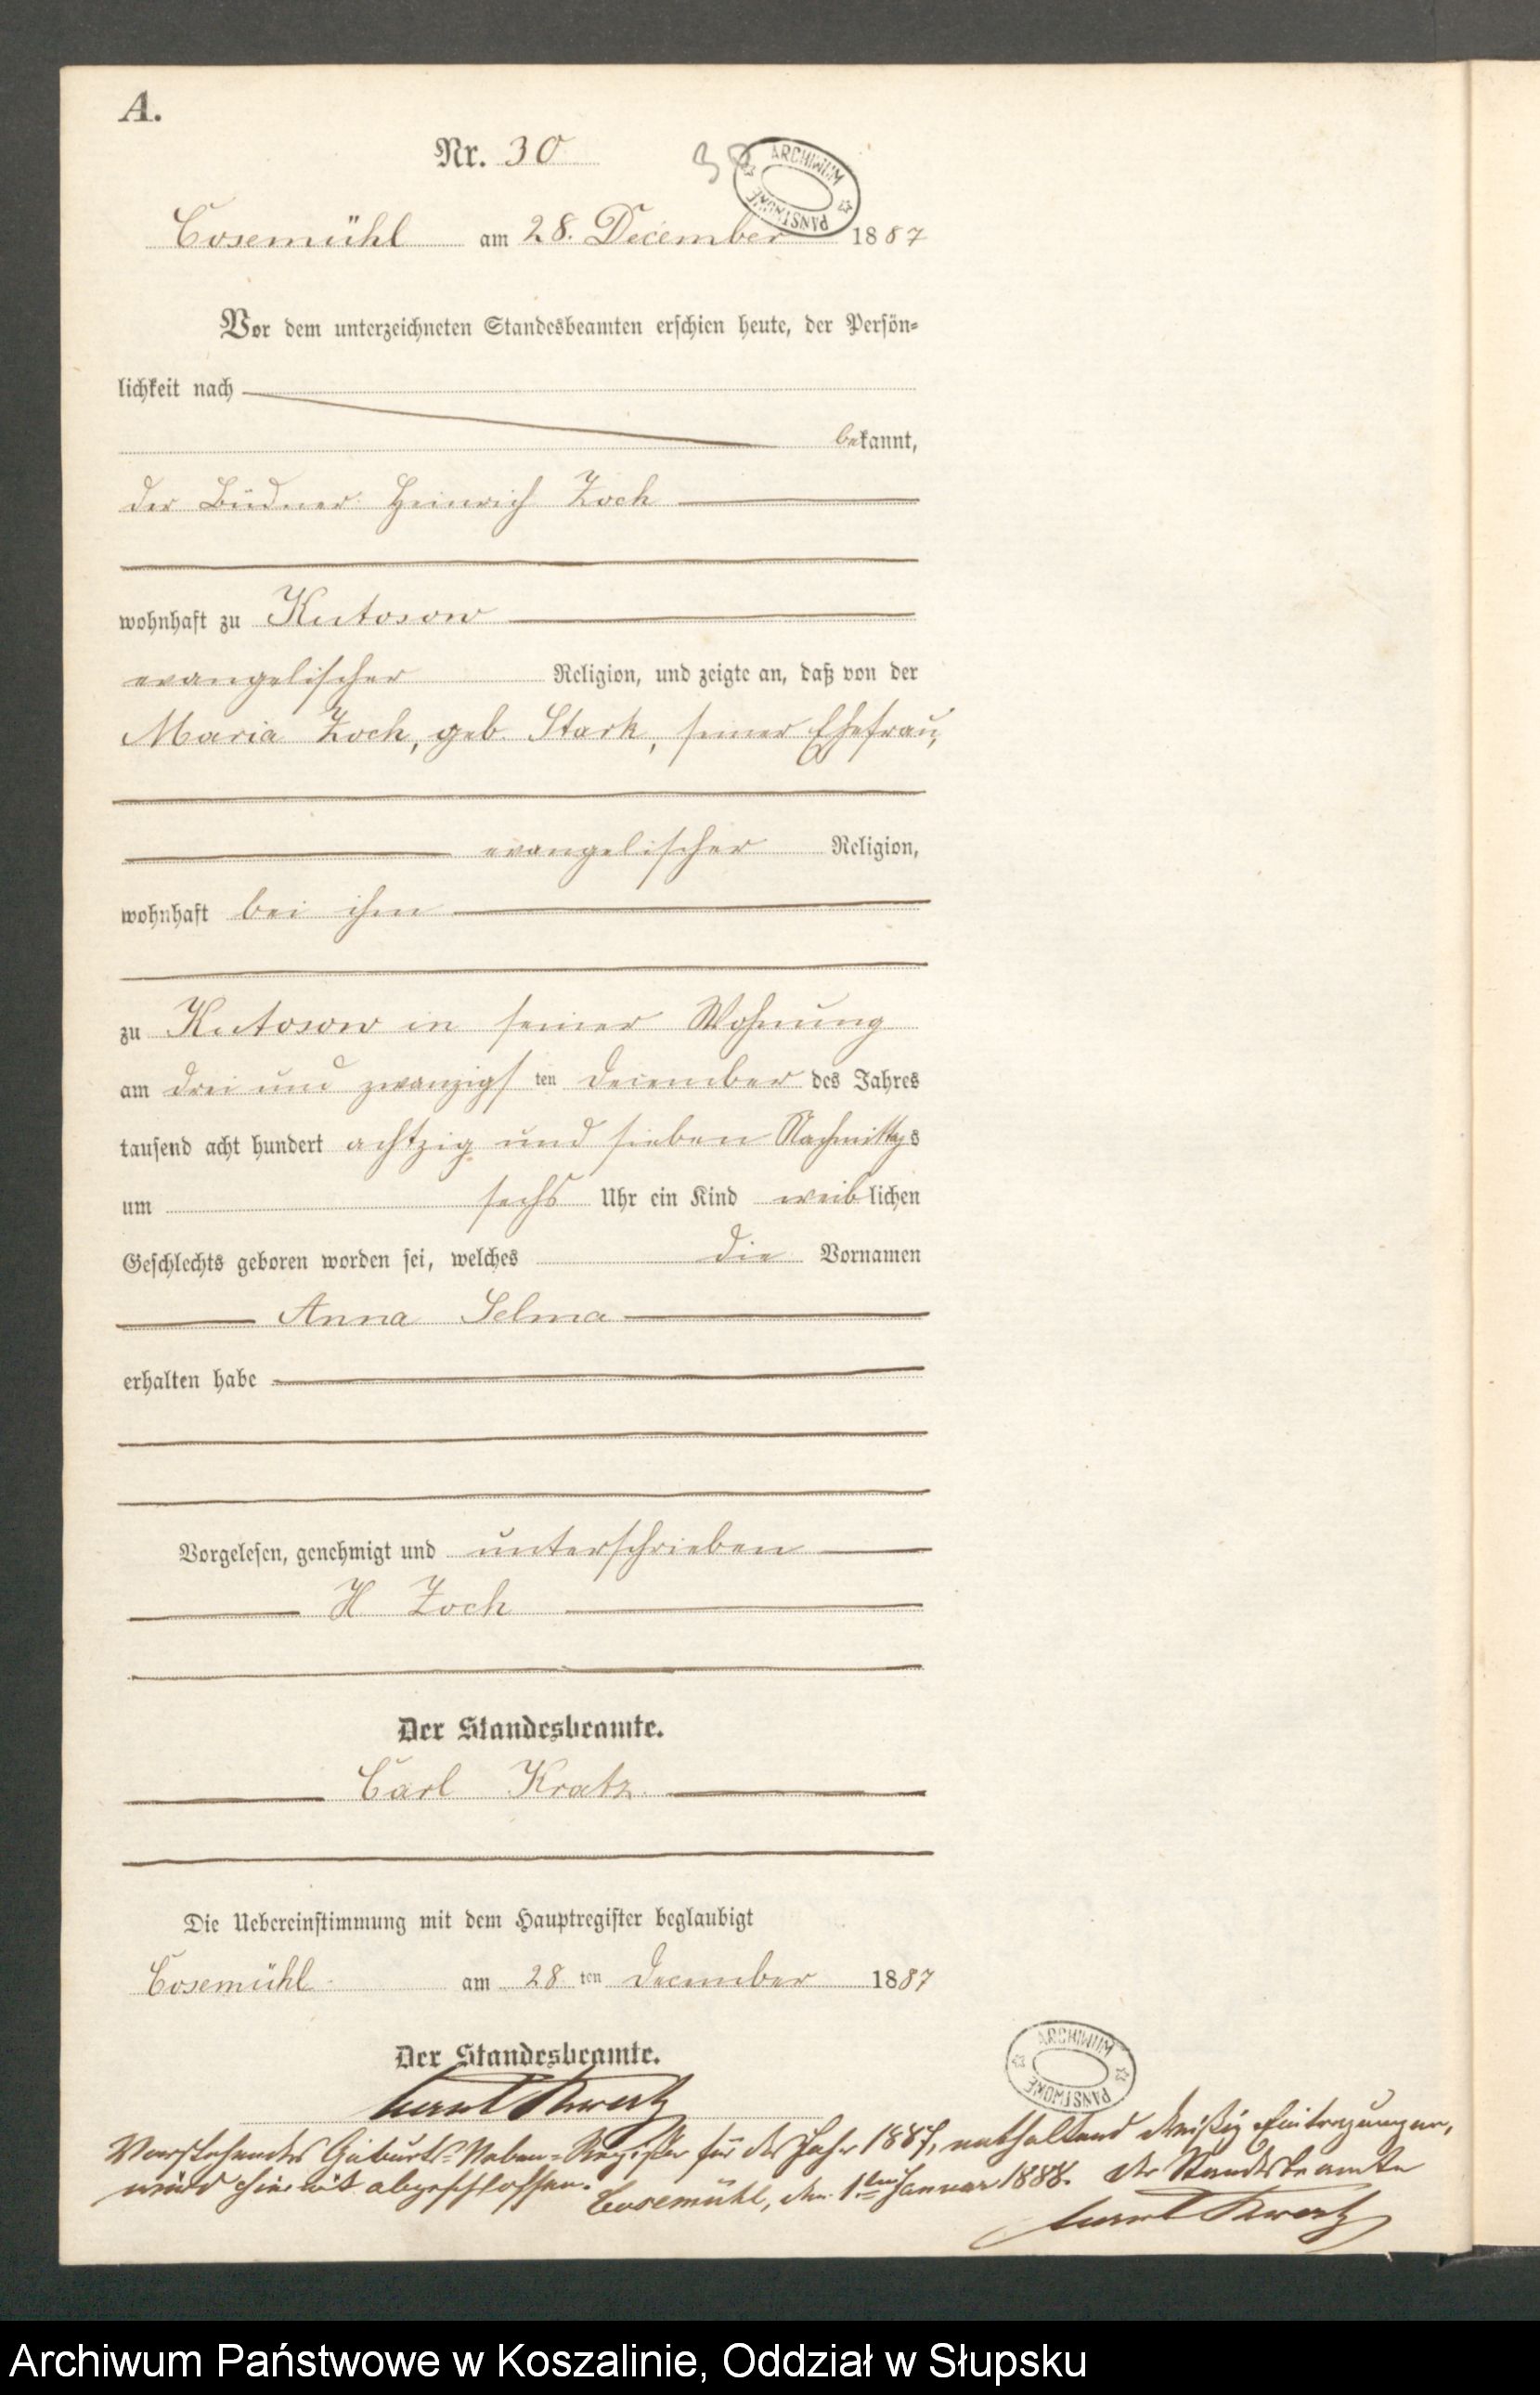 A.
Nr. 30
30
ARCHIWUM PAŃSTWOWE
Cosemühl am 28. December 1887
Vor dem unterzeichneten Standesbeamten erschien heute, der Persön-
lichkeit nach
bekannt,
der Büdner Heinrich Zoch
wohnhaft zu Kutosow
evangelischer Religion, und zeigte an, daß von der
Maria Zoch, geb. Stark, seiner Ehefrau,
evangelischer Religion,
wohnhaft bei ihm
zu Kutosow in seiner Wohnung
am drei und zwanzigsten December des Jahres
tausend acht hundert achtzig und sieben Nachmittags
um sechs Uhr ein Kind weiblichen
Geschlechts geboren worden sei, welches die Vornamen
Anna Selma
erhalten habe
Vorgelesen, genehmigt und unterschrieben
H Zoch
Der Standesbeamte.
Carl Kratz
Die Uebereinstimmung mit dem Hauptregister beglaubigt
Cosemühl am 28ten December 1887
Der Standesbeamte.
Carl Kratz
ARCHIWUM PAŃSTWOWE
Vorstehendes Geburts-Neben-Register für das Jahr 1887, enthaltend dreißig Eintragungen,
wird hiermit abgeschlossen.
Cosemühl, den 1ten Januar 1888. Der Standesbeamte
Carl Kratz
Archiwum Państwowe w Koszalinie, Oddział w Słupsku